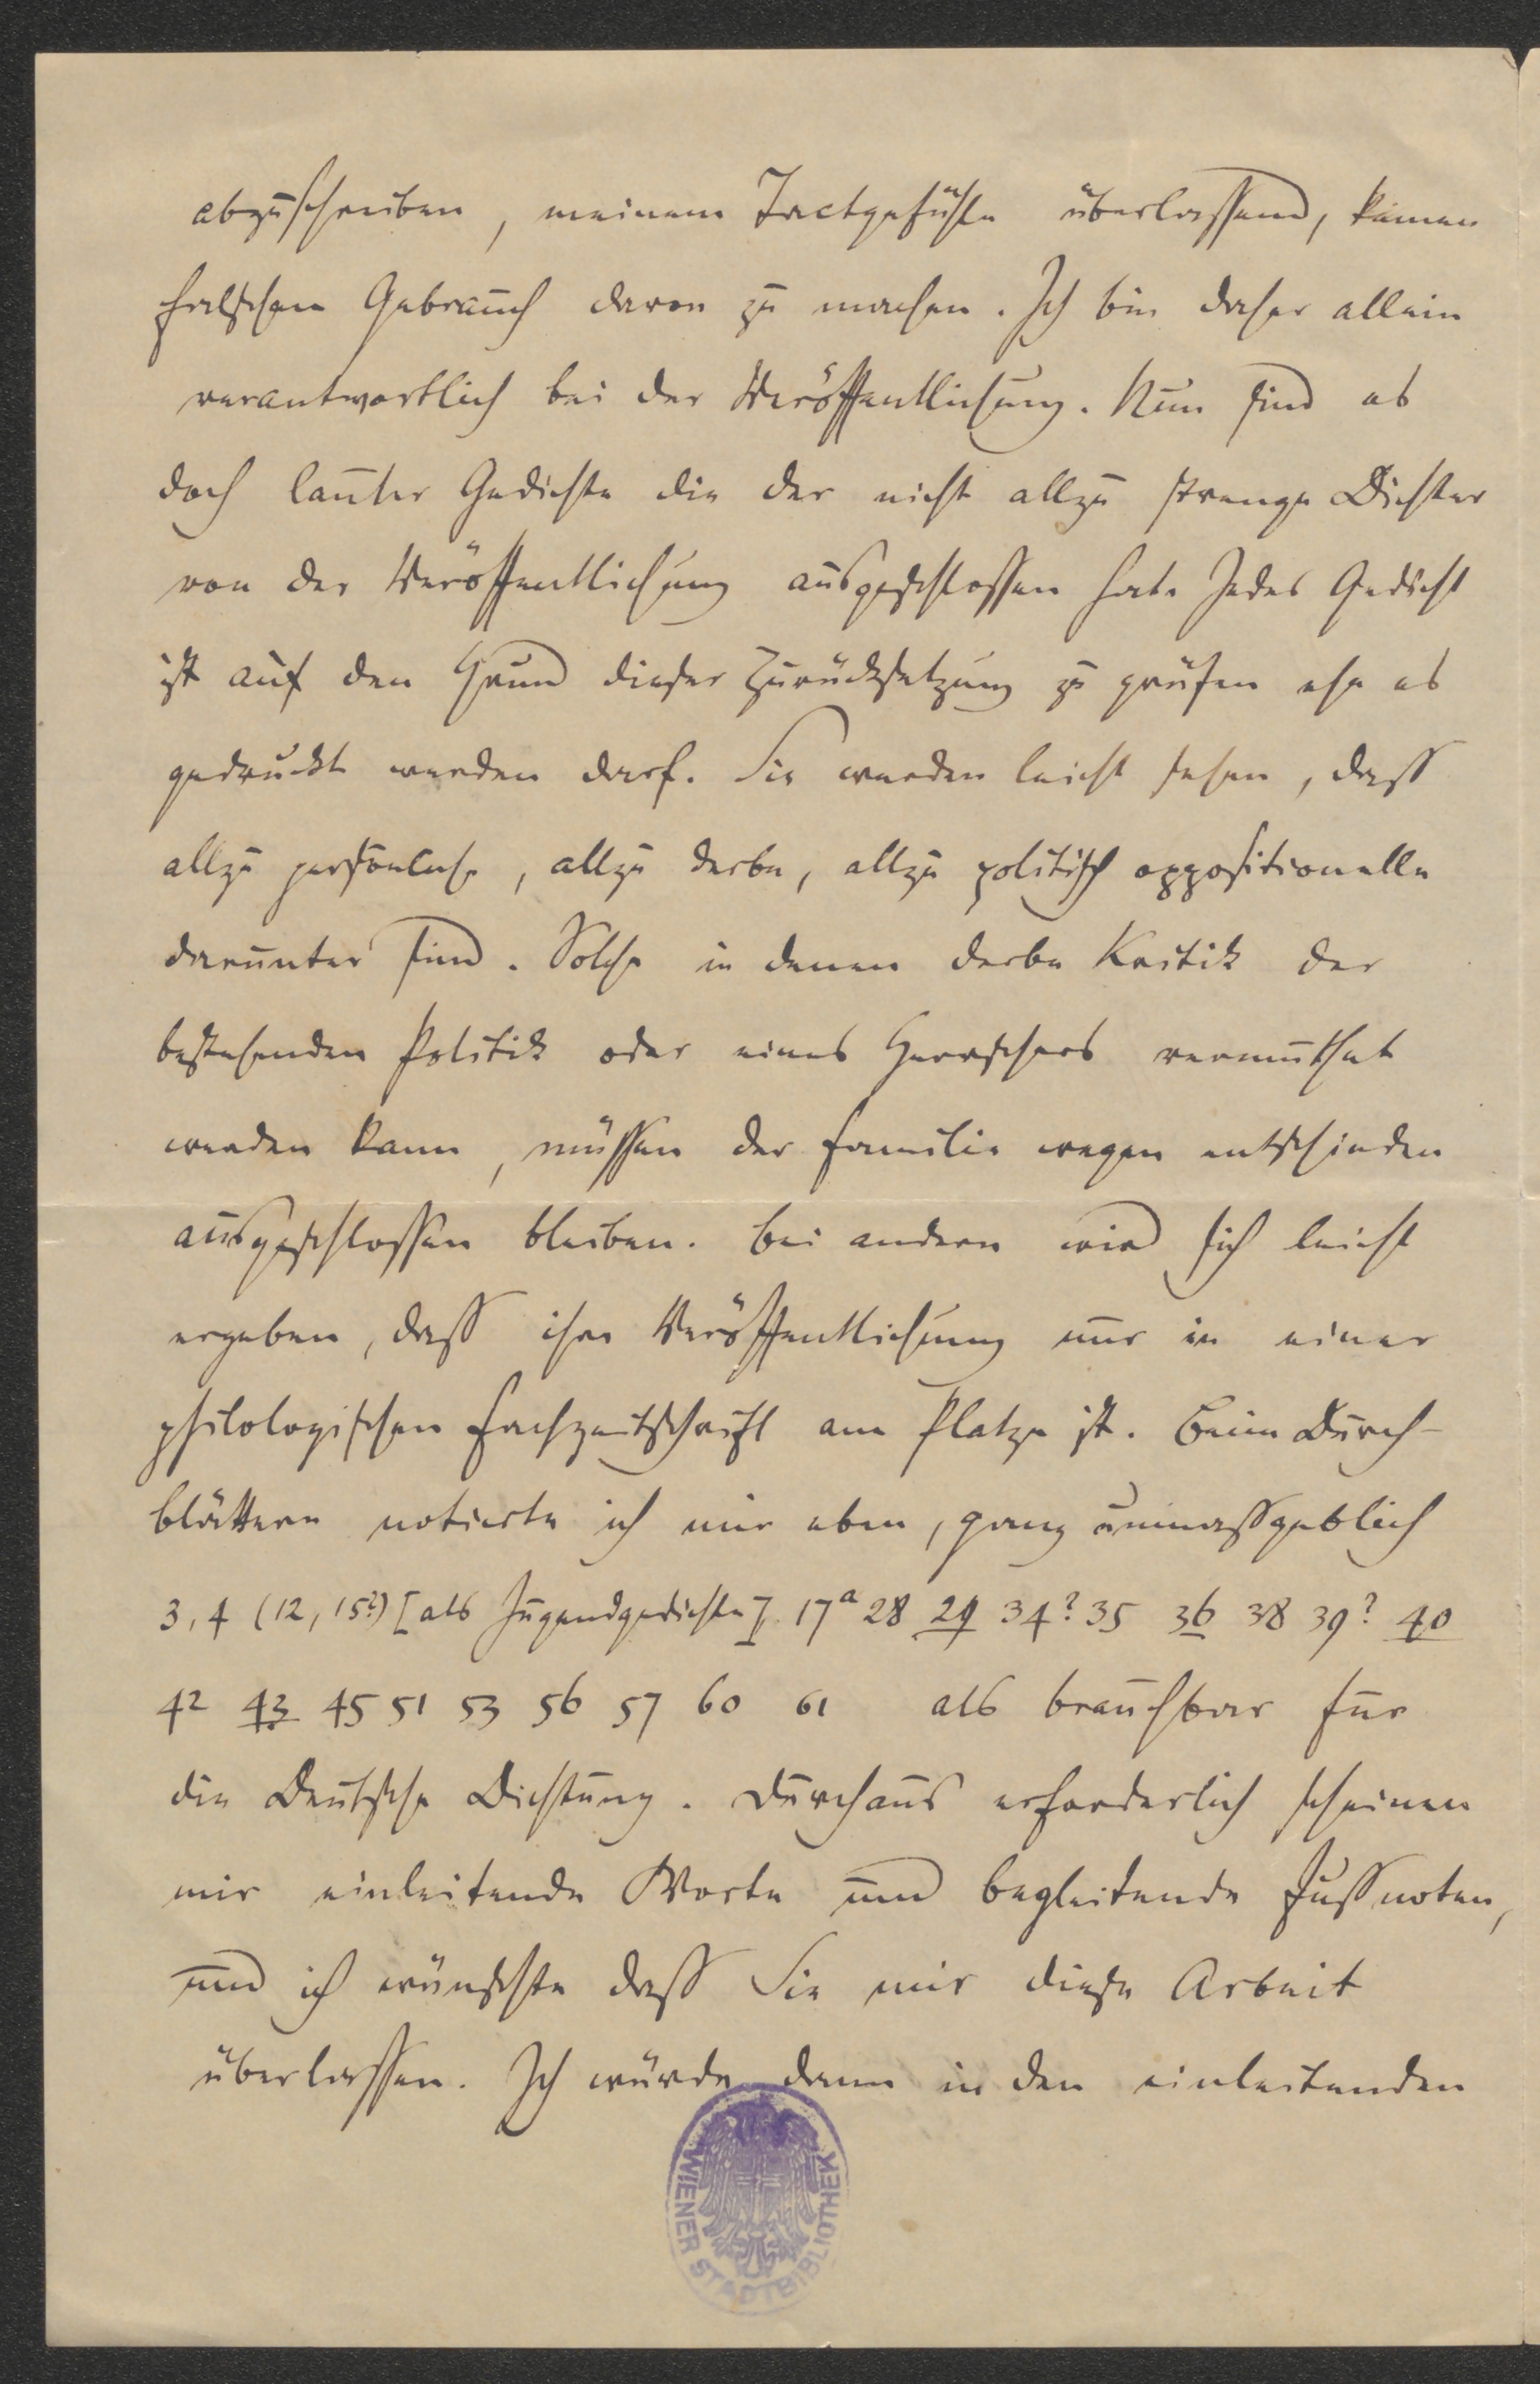 abzuschreiben, meinem Tactgefühle überlassend, keinen
falschen Gebrauch davon zu machen. Ich bin daher allein
verantwortlich bei der Veröffentlichung. Nun sind es
doch lauter Gedichte die der nicht allzu strenge Dichter
von der Veröffentlichung ausgeschlossen hat. Jedes Gedicht
ist auf den Grund dieser Zurücksetzung zu prüfen ehe es
gedruckt werden darf. Sie werden leicht sehen, dass
allzu persönliche, allzu derbe, allzu politisch oppositionelle
darunter sind. Solche in denen derbe Kritik der
bestehenden Politik oder eines Herrschers vermuthet
werden kann, müssen der Familie wegen entschieden
ausgeschlossen bleiben. Bei andern wird sich leicht
ergeben, dass ihre Veröffentlichung nur in einer
philologischen Fachzeitschrift am Platze ist. Beim Durch-
blättern notierte ich mir eben, ganz unmassgeblich
3, 4 (12, 15?) [als Jugendgedichte]. 17a 28 29 34? 35 36 38 39? 40
42 43 45 51 53 56 57 60 61 als brauchbar für
die Deutsche Dichtung. Durchaus erforderlich scheinen
mir einleitende Worte und begleitende Fussnoten,
und ich wünschte dass Sie mir diese Arbeit
überlassen. Ich würde dann in den einleitenden
WIENER STADTBIBLIOTHEK